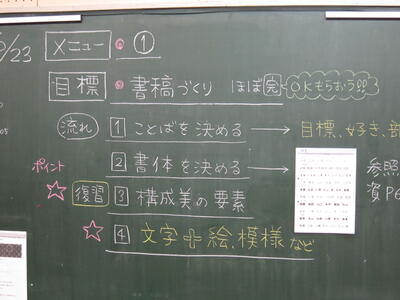 /23 メニュー ①
目標 書稿づくり ほぼ完 OKもらおう!!
流れ 1 ことばを決める → 目標、好き、部
ポイント 2 書体を決める → 参照
資P6
☆ 復習 3 構成美の要素
☆ 4 文字+絵、模様など